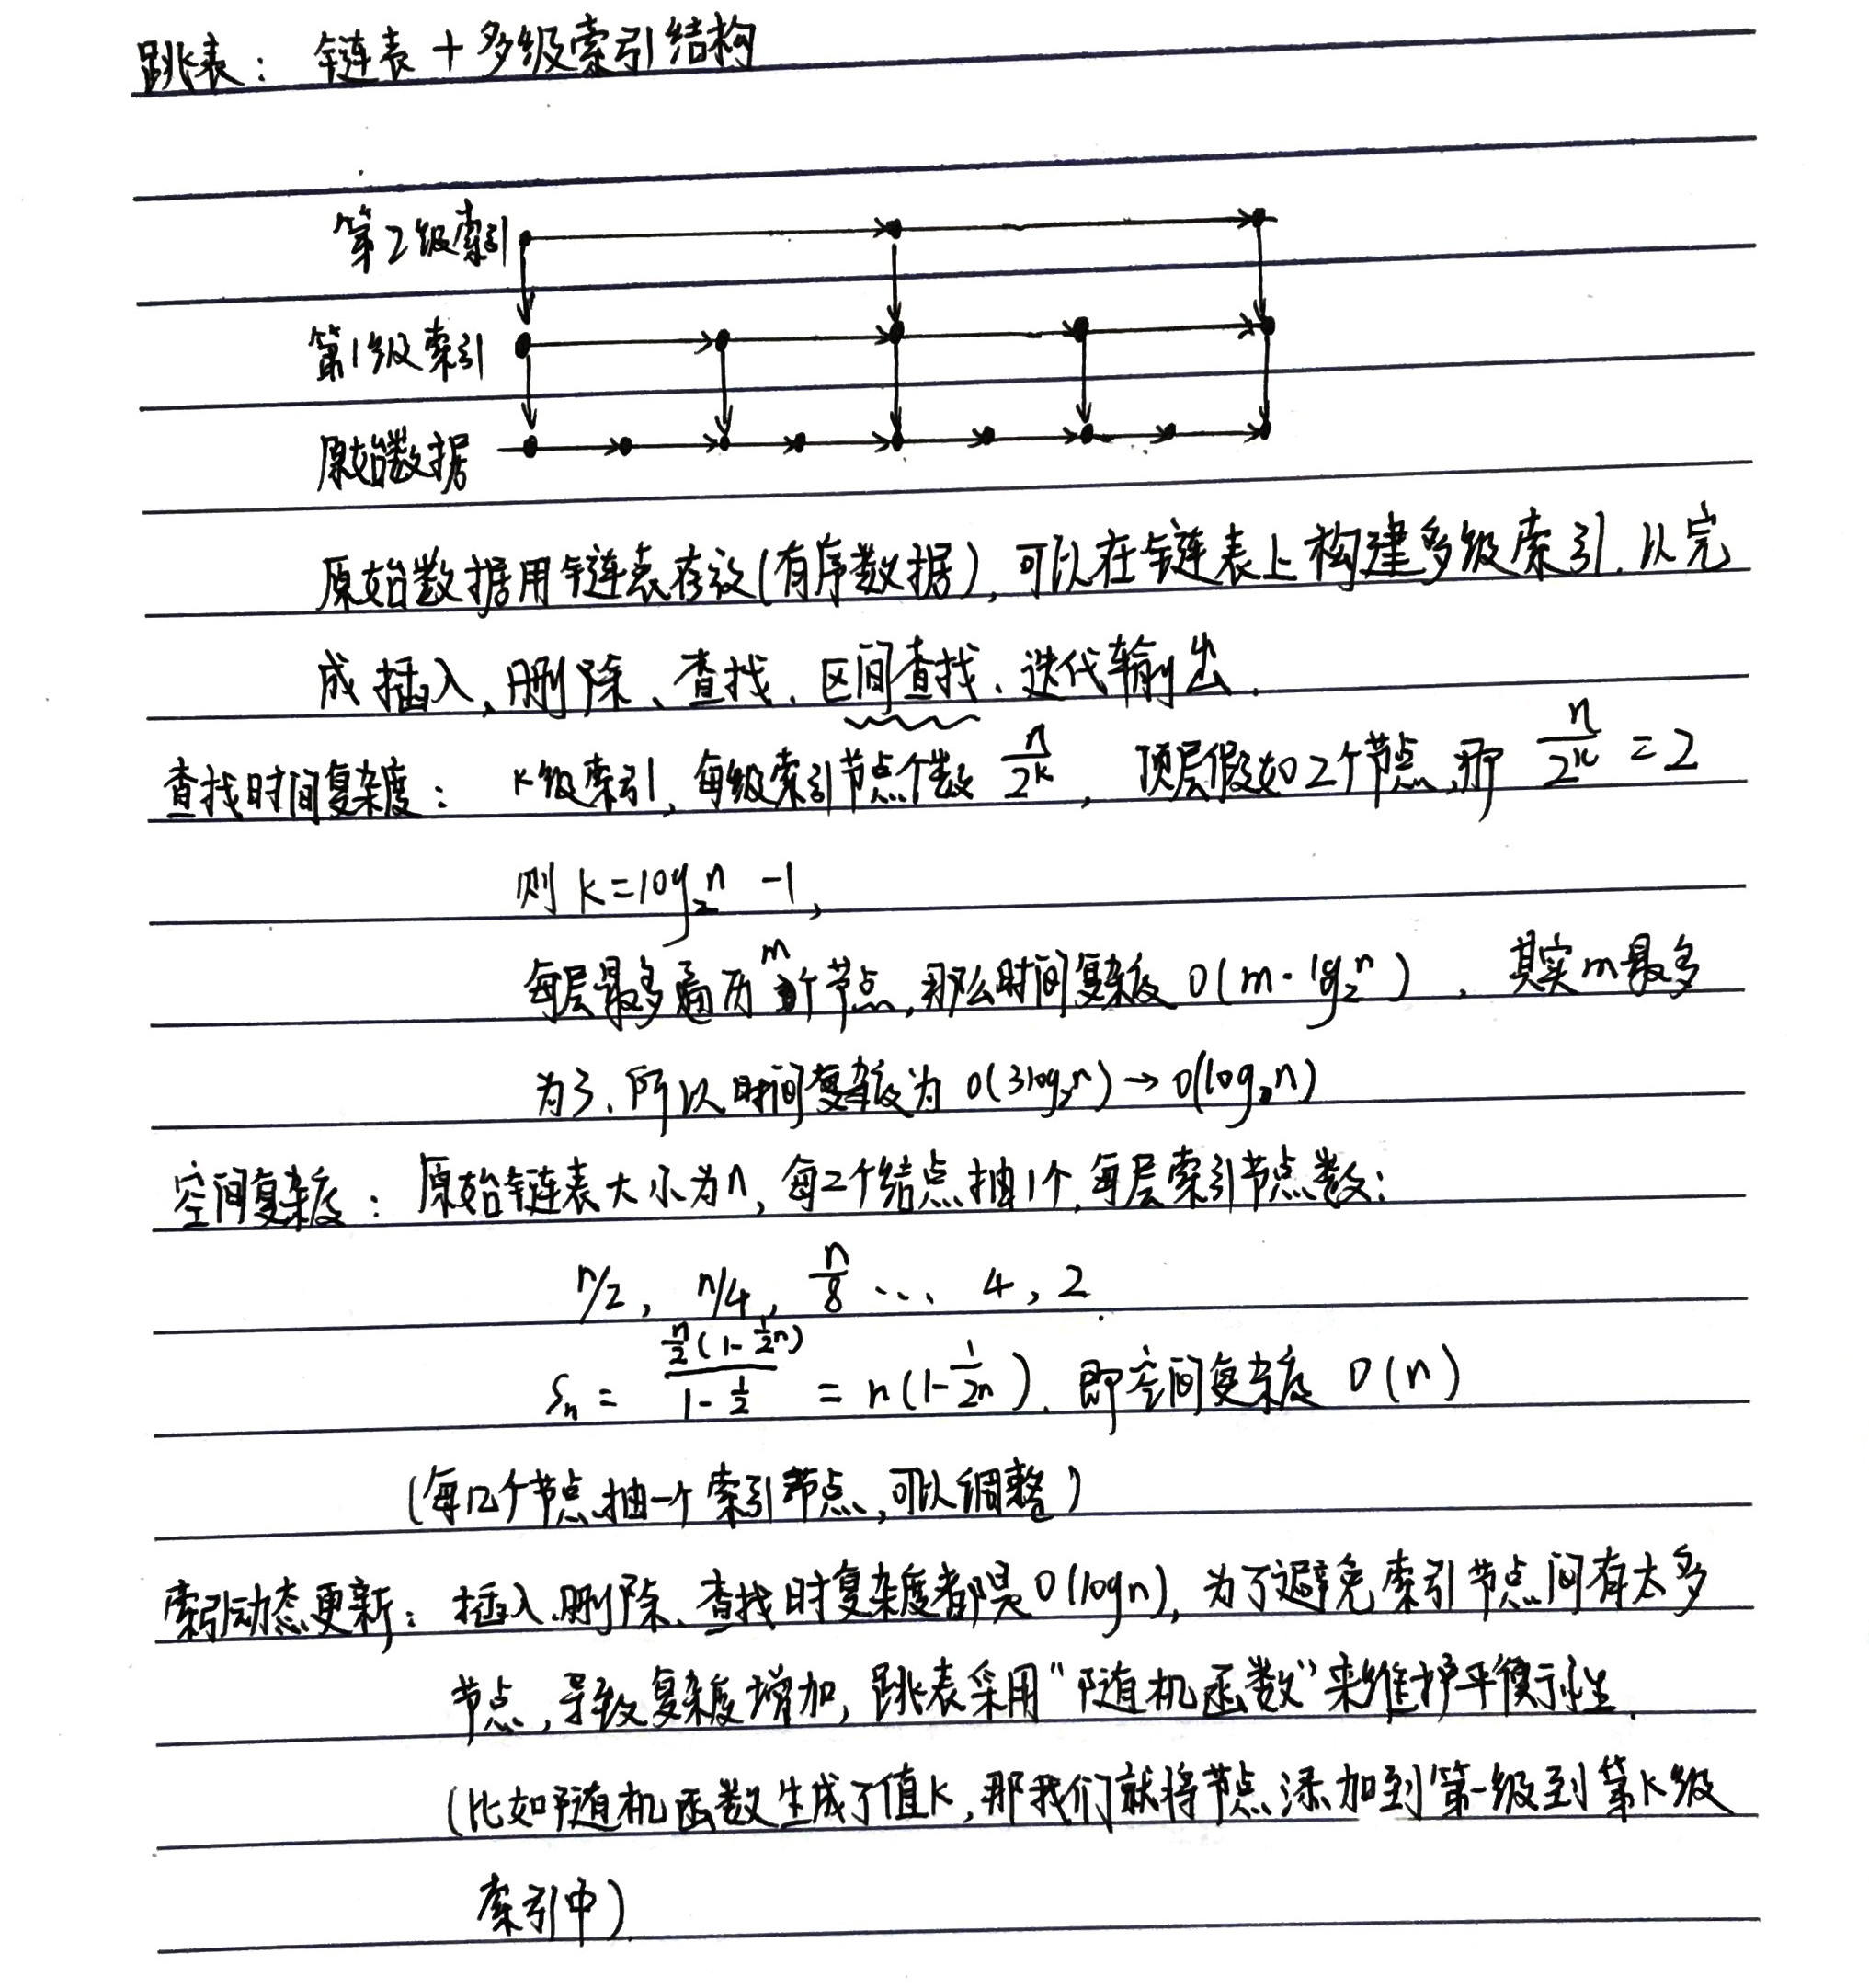 跳表: 链表 + 多级索引结构
第2级索引
第1级索引
原始数据
原始数据用链表存放(有序数据), 可以在链表上构建多级索引. 以完
成插入、删除、查找、区间查找、迭代输出.
查找时间复杂度: K级索引, 每级索引节点个数 n/2^k, 顶层假如2个节点, 那 n/2^k = 2
则 k=log₂n -1,
每层最多遍历m个节点, 那么时间复杂度 O(m·lg₂n), 其实m最多
为3, 所以时间复杂度为 O(3log₂n)→O(log₂n)
空间复杂度: 原始链表大小为n, 每2个结点抽1个, 每层索引节点数:
n/2, n/4, n/8 ... 4, 2.
Sn = (n/2(1-1/2n))/(1-1/2) = n(1-1/2n). 即空间复杂度 O(n)
(每几个节点抽一个索引节点, 可以调整)
索引动态更新: 插入、删除、查找时复杂度都是O(logn), 为了避免索引节点间有太多
节点, 导致复杂度增加, 跳表采用"随机函数"来维护平衡性.
(比如随机函数生成了值K, 那我们就将节点添加到第一级到第K级
索引中).